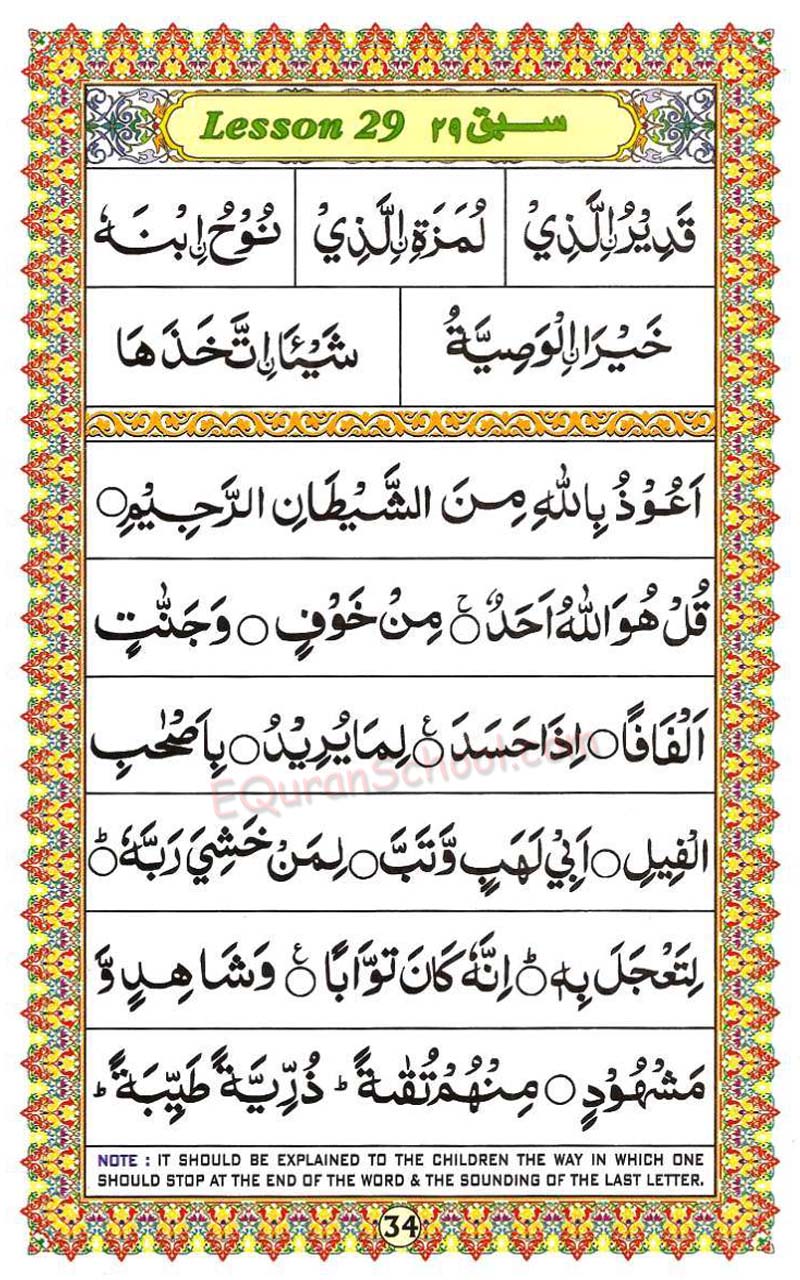 Lesson 29 سبق ٢٩
قَدِيْرُ ۨالَّذِيْ لُمَزَةِ ۨالَّذِيْ نُوْحُ ۨابْنَهٗ
خَيْرَا ۨالْوَصِيَّةُ شَيْـًٔا ۨاتَّخَذَهَا
اَعُوْذُ بِاللّٰهِ مِنَ الشَّيْطَانِ الرَّجِيْمِ○
قُلْ هُوَ اللّٰهُ اَحَدٌ○ۚ مِنْ خَوْفٍ○ وَجَنّٰتٍ
اَلْفَافًا○ اِذَا حَسَدَ○ع لِمَا يُرِيْدُ○ بِاَصْحٰبِ
الْفِيْلِ○ اَبِيْ لَهَبٍ وَّتَبَّ○ لِمَنْ خَشِيَ رَبَّهٗ○ؕ
لِتَعْجَلَ بِهٖ○ؕ اِنَّهٗ كَانَ تَوَّابًا○ع وَشَاهِدٍ وَّ
مَشْهُوْدٍ○ مِنْهُمْ تُقٰىةً ؕ ذُرِّيَّةً طَيِّبَةً ؕ
EQuranSchool.com
NOTE : IT SHOULD BE EXPLAINED TO THE CHILDREN THE WAY IN WHICH ONE
SHOULD STOP AT THE END OF THE WORD & THE SOUNDING OF THE LAST LETTER.
34